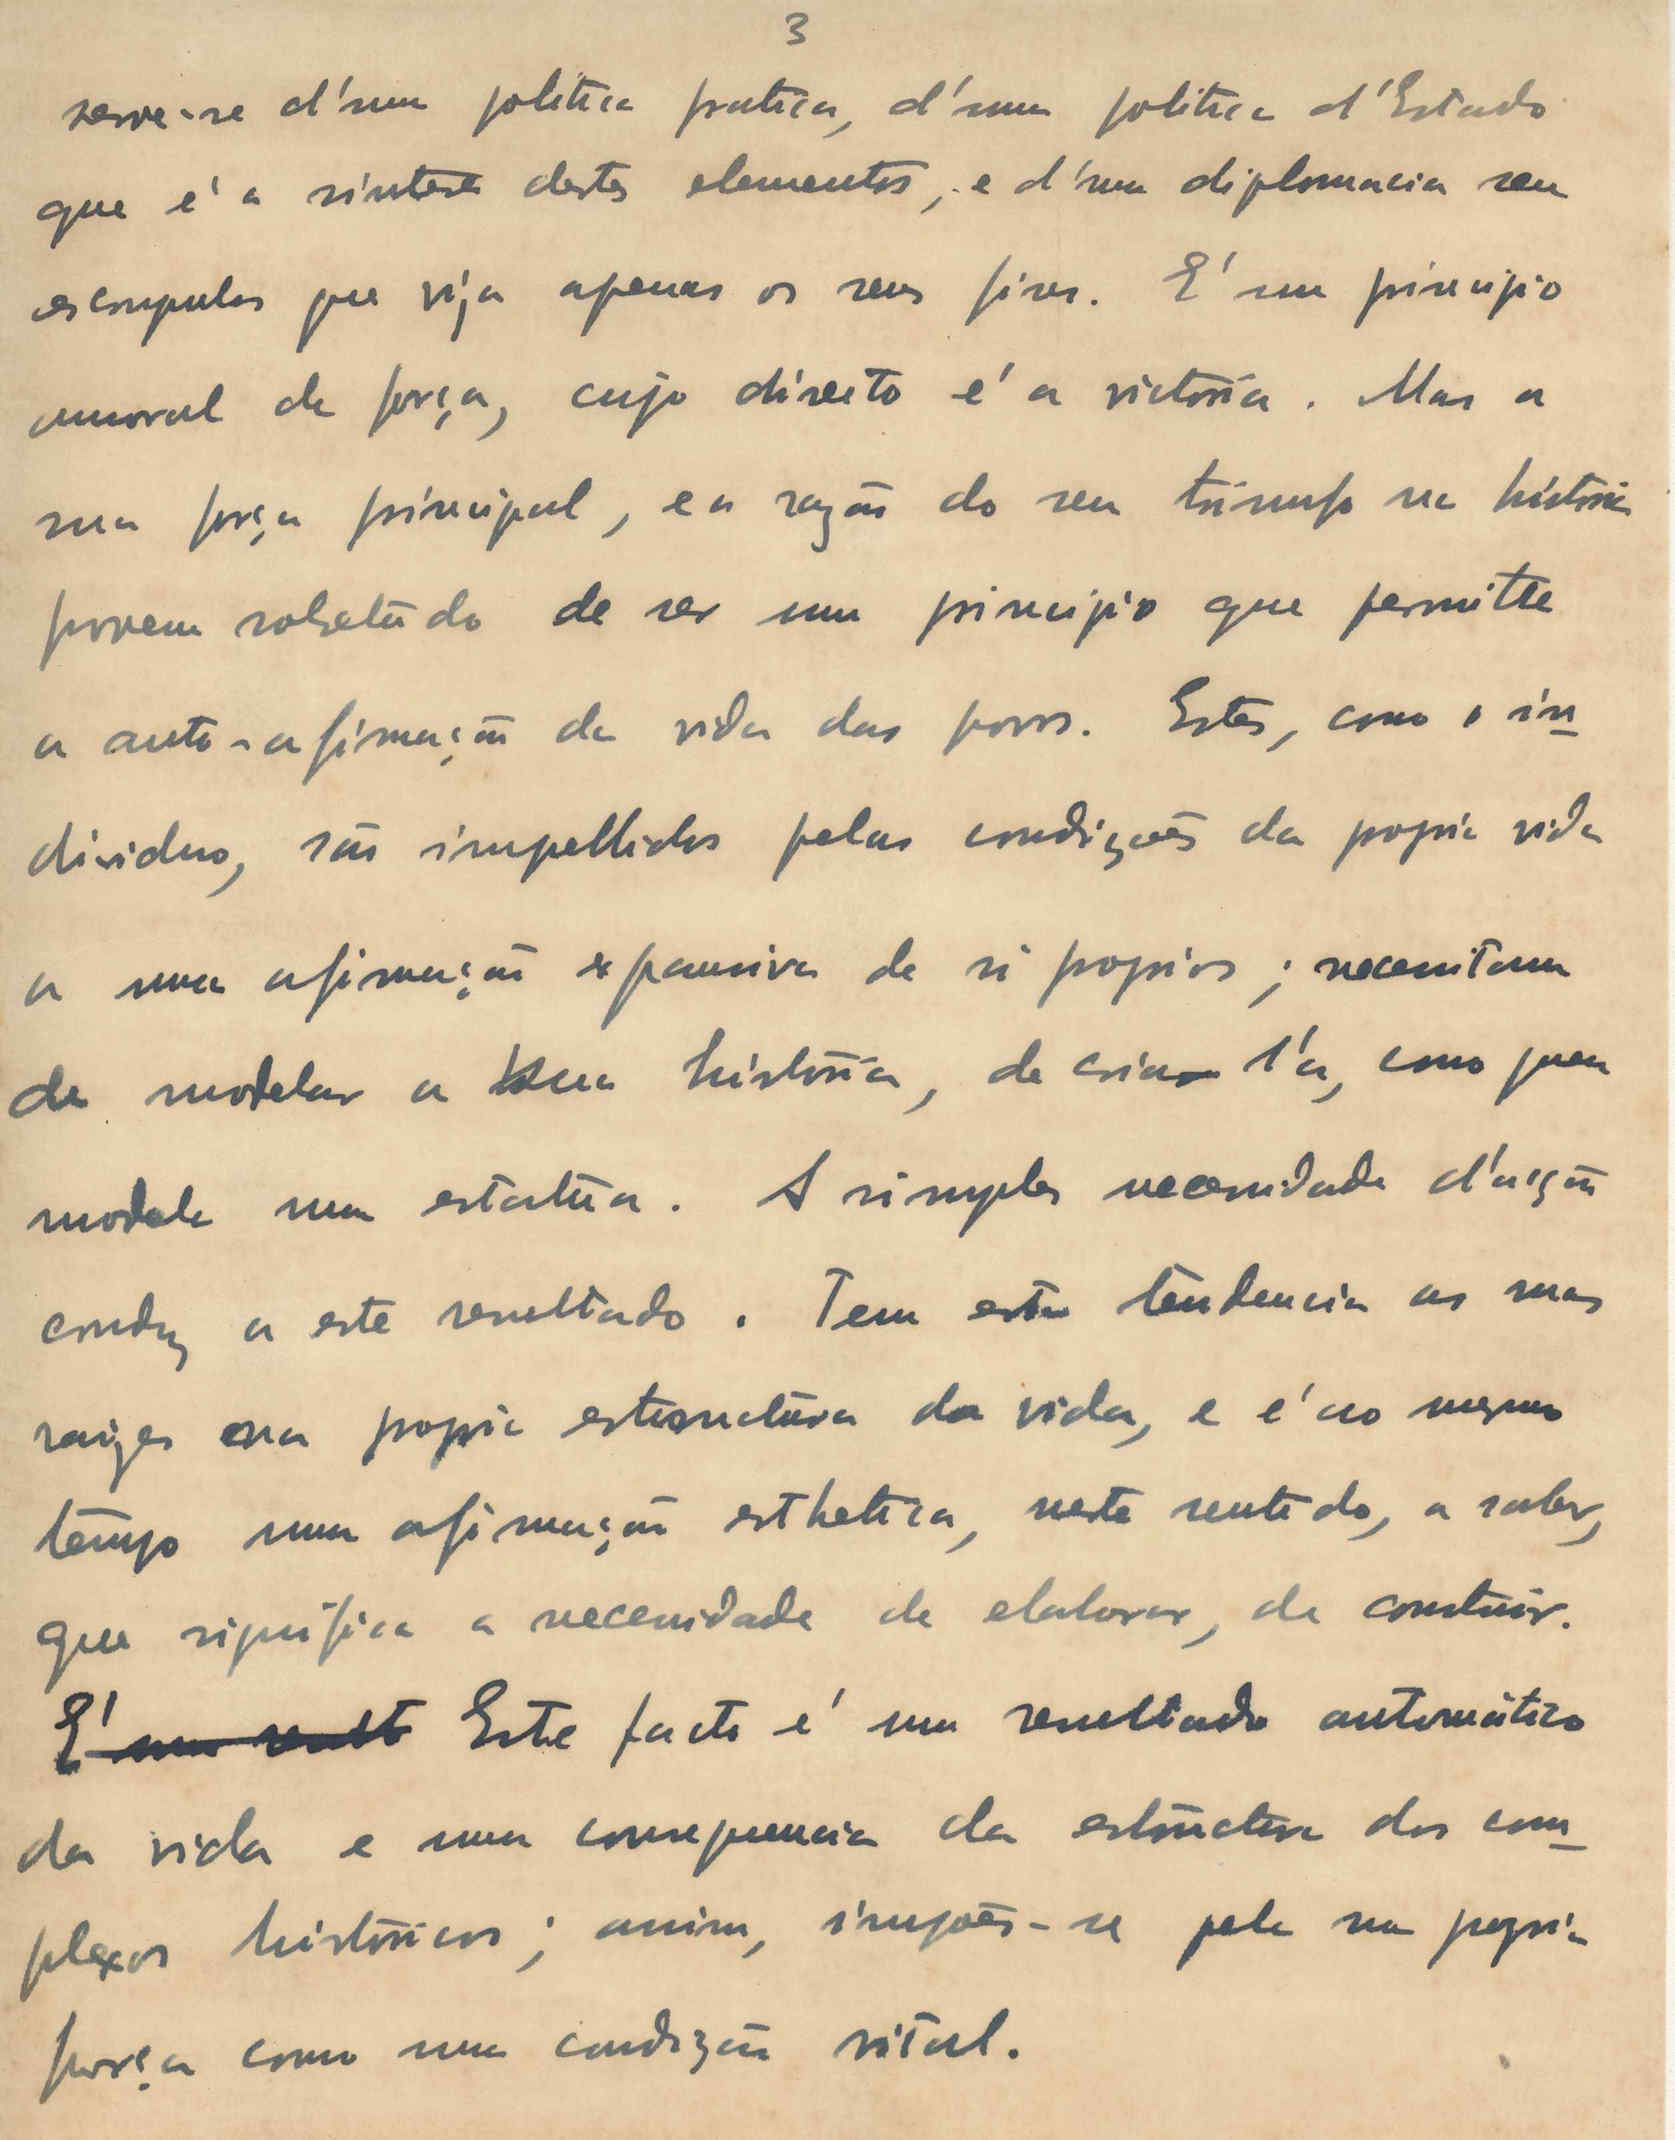 3
serve-se d'uma politica pratica, d'uma politica d'Estado
que é a sintese destes elementos, e d'uma diplomacia sem
escrupulos que visa apenas os seus fins. E' um principio
amoral de força, cujo direito é a victoria. Mas a
sua força principal, e a razão do seu triumfo na historia
provem sobretudo de ser um principio que permitte
a auto-afirmação da vida dos povos. Estes, como o in-
dividuo, são impellidos pelas condições da propria vida
a uma afirmação expansiva de si proprios; necessitam
de modelar a sua história, de criar l'a, como quem
modela uma estatua. A simples necessidade d'acção
conduz a este resultado. Tem esta tendencia as suas
raizes na propria estructura da vida, e é ao mesmo
tempo uma afirmação esthetica, neste sentido, a saber,
que significa a necessidade de elaborar, de construir.
E' um result Este facto é um resultado automático
da vida e uma consequencia da estructura dos com-
plexos históricos; assim, impões-se pela sua propria
força como uma condição vital.